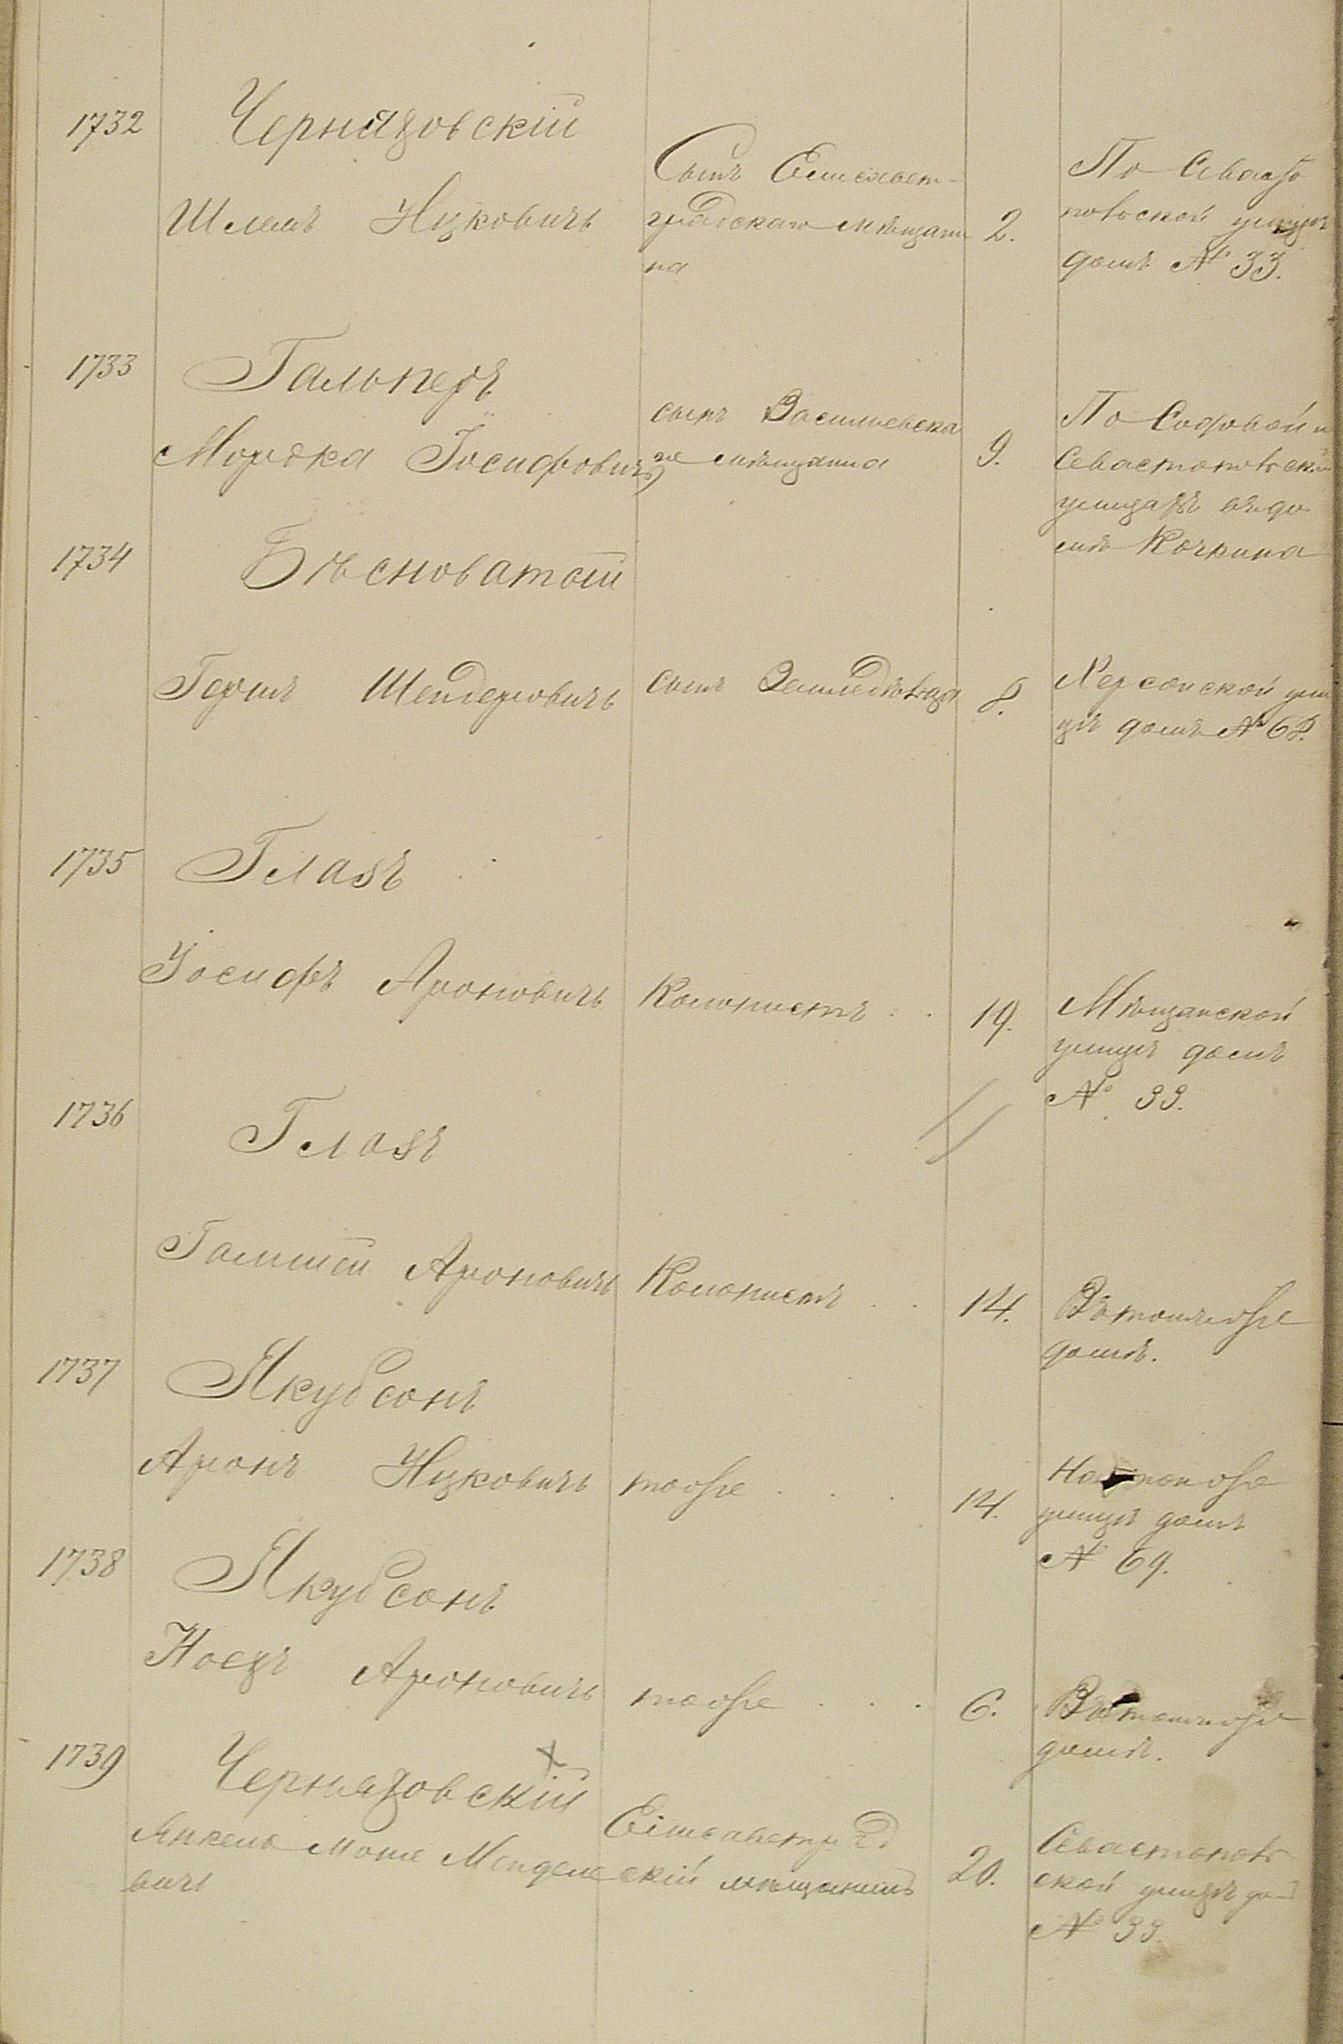 1732
Черняховскій
Шлемъ Ицковичъ
Сынъ Елисавет-
градскаго мѣщани
на
2.
По Севасто
польской улицѣ
домъ № 33.
1733
Гальперъ
Мордка Іосифовичъ
сынъ Василевска
го мѣщанина
9.
По Садовой и
Севастопольской
улицахъ въ до
мѣ Кочкина
1734
Бѣсноватой
Гершъ Шендеровичъ
сынъ Земледѣльца
8.
Херсонской ули
цѣ домъ № 68.
1735
Глазъ
Іосифъ Ароновичъ
Колонистъ . .
19.
Мѣщанской
улицѣ домъ
№ 33.
1736
Глазъ
Ароновичъ
Колонистъ . .
14.
Въ томъ же
домѣ.
1737
Якубсонъ
Аронъ Ицковичъ
тоже . . .
14.
На той же
улицѣ домъ
№ 69.
1738
Якубсонъ
Ароновичъ
тоже . . .
6.
Въ томъ же
домѣ.
1739
Черняховскій
Янкель Моше Менделе
вичъ
Елисаветград
скій мѣщанинъ
20.
Севастополь
ской улицѣ дом
№ 33.